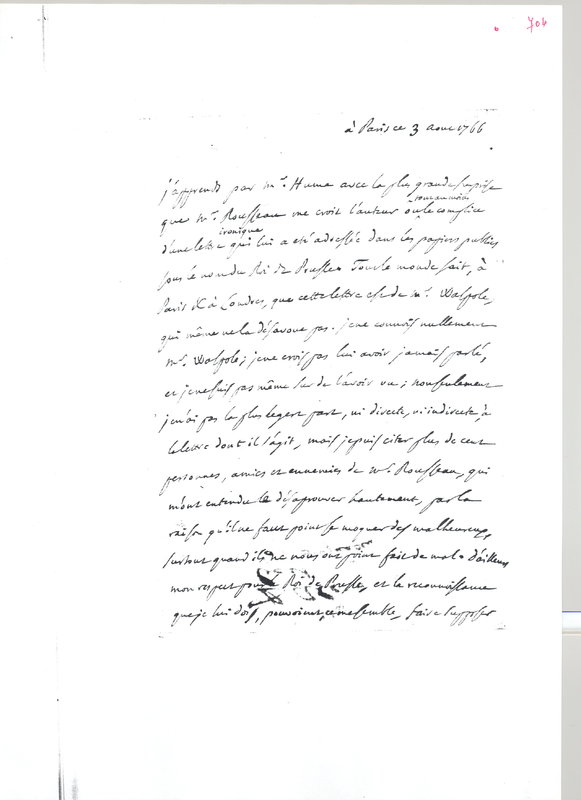 706
à Paris ce 3 aout 1766
j'apprends par mr. Hume avec la plus grande surprise
que mr. Rousseau me croit l'auteur ou tout au moins le complice
d'une lettre ironique qui lui a eté adressée dans les papiers publics
sous le nom du Roi de Prusse. Tout le monde sait, à
Paris & à Londres, que cette lettre est de mr. Walpole,
qui même ne la désavoue pas. je ne connois nullement
mr. Walpole; je ne crois pas lui avoir jamais parlé,
et je ne suis pas même sur de l'avoir vu; nonseulement
je n'ai pas la plus legere part, ni directe, ni indirecte, à
la lettre dont il s'agit, mais je puis citer plus de cent
personnes, amies et ennemies de mr. Rousseau, qui
m'ont entendu le désaprouver hautement, par la
raison qu'il ne faut point se moquer des malheureux,
surtout quand ils ne nous ont point fait de mal. d'ailleurs
mon respect pour le Roi de Prusse, et la reconnoissance
que je lui dois, pouvoient, ce me semble, faire supposer